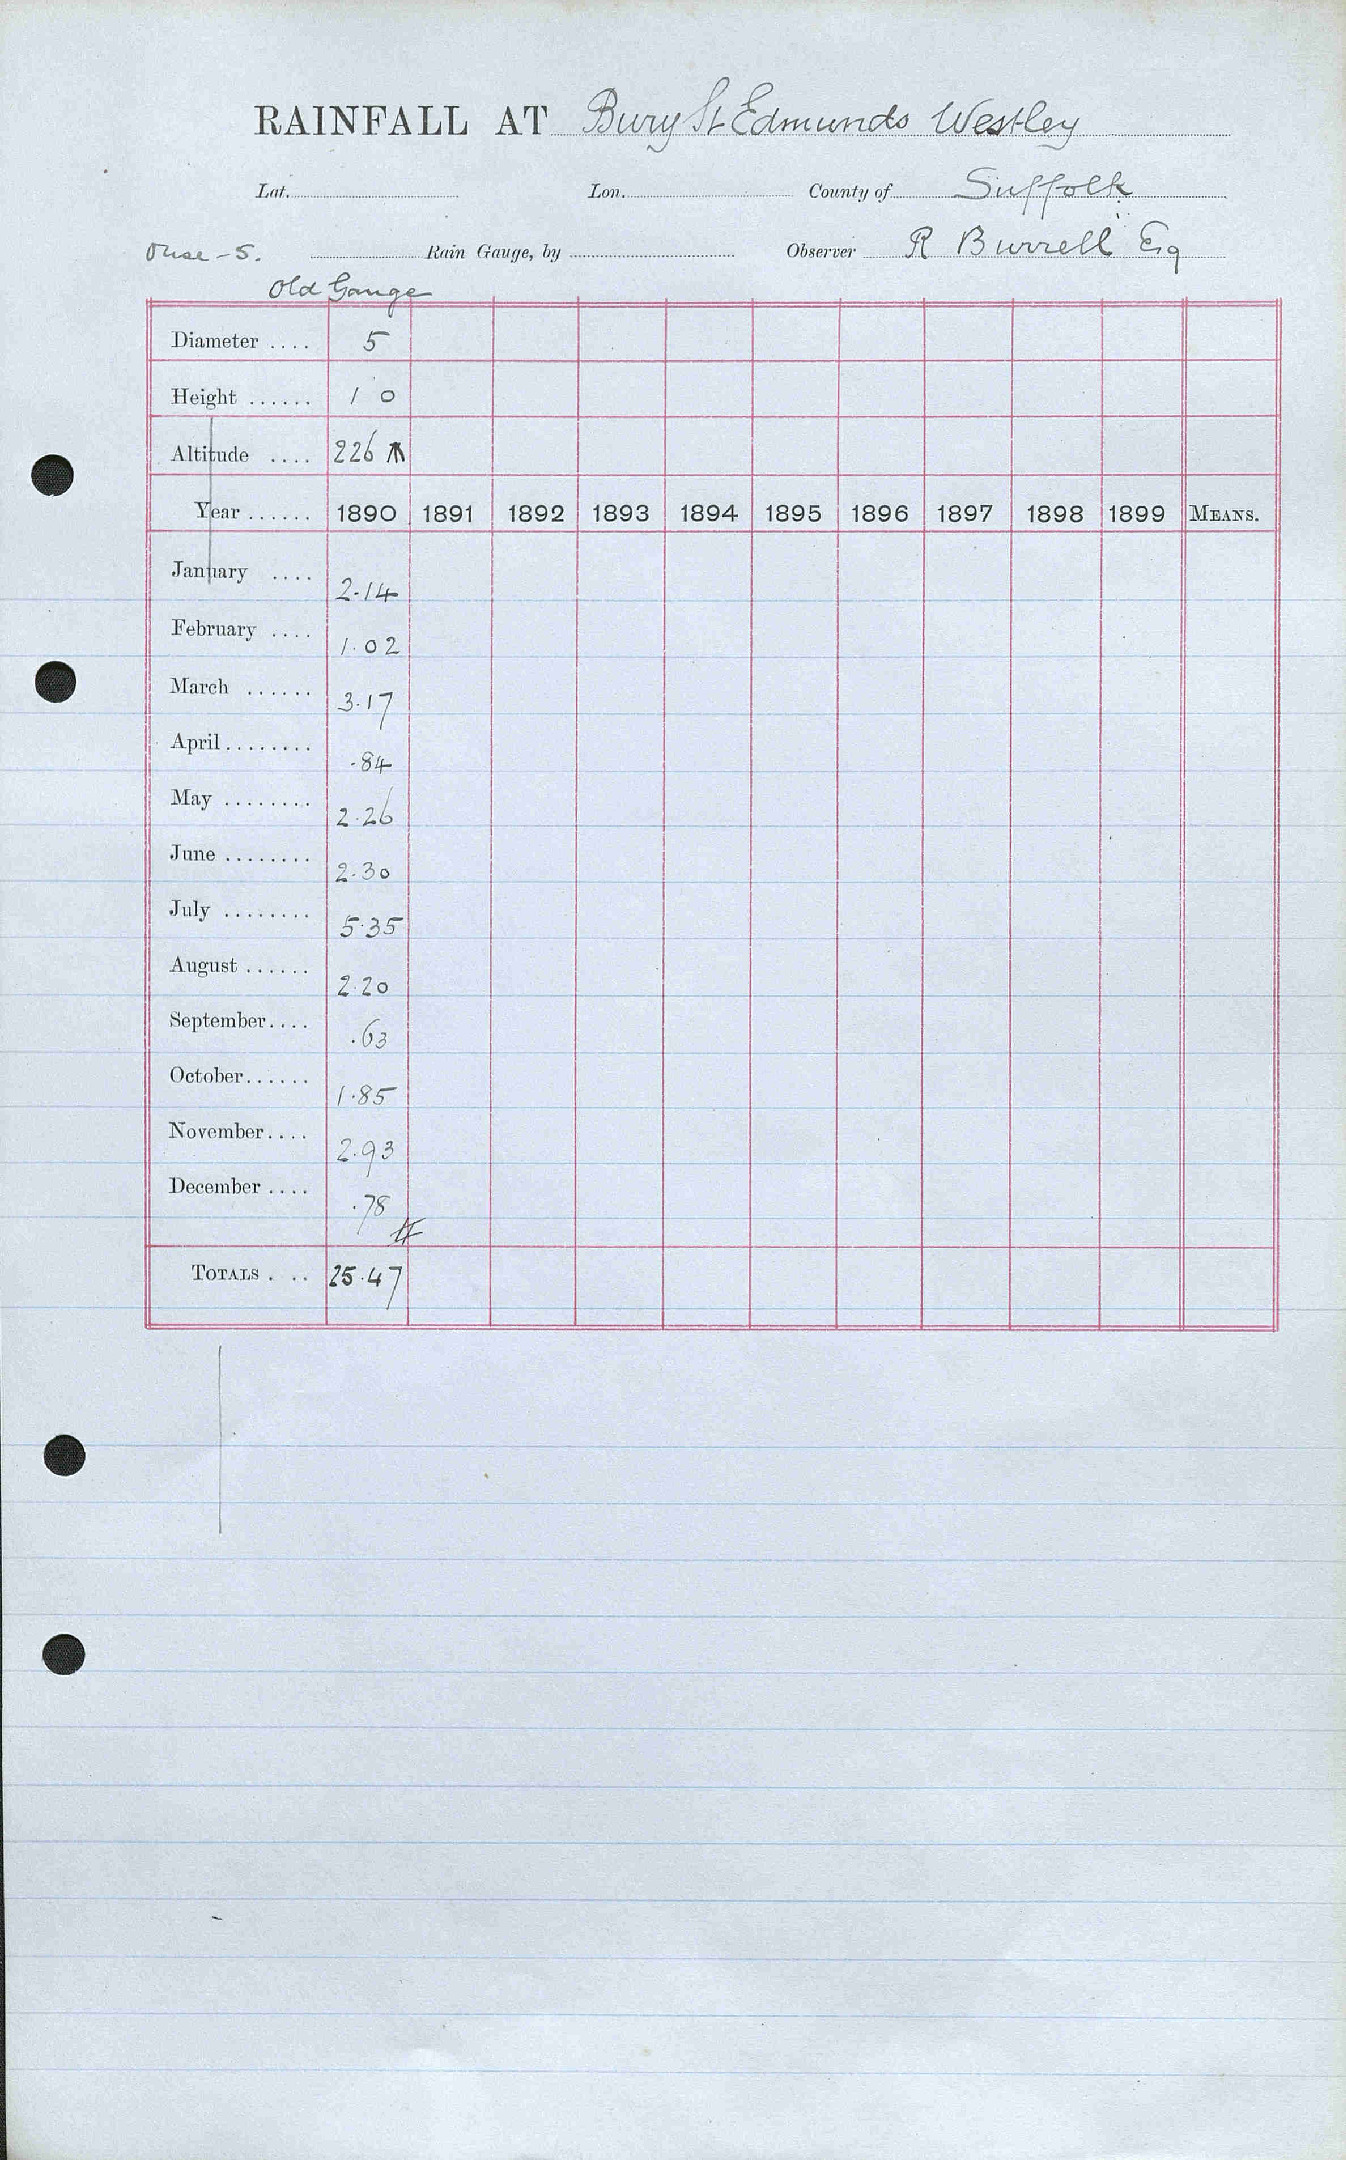 RAINFALL AT Bury St Edmunds Westley
Lat. Lon. County of Suffolk
Ouse - 5. Rain Gauge, by Observer R Burrell Esq
Old Gauge
Diameter .... 5
Height ...... 1 0
Altitude .... 226
Year ...... 1890 1891 1892 1893 1894 1895 1896 1897 1898 1899 MEANS.
January .... 2.14
February .... 1.02
March ...... 3.17
April ........ .84
May ........ 2.26
June ........ 2.30
July ........ 5.35
August ...... 2.20
September.... .63
October...... 1.85
November.... 2.93
December .... .78
TOTALS . .. 25.47